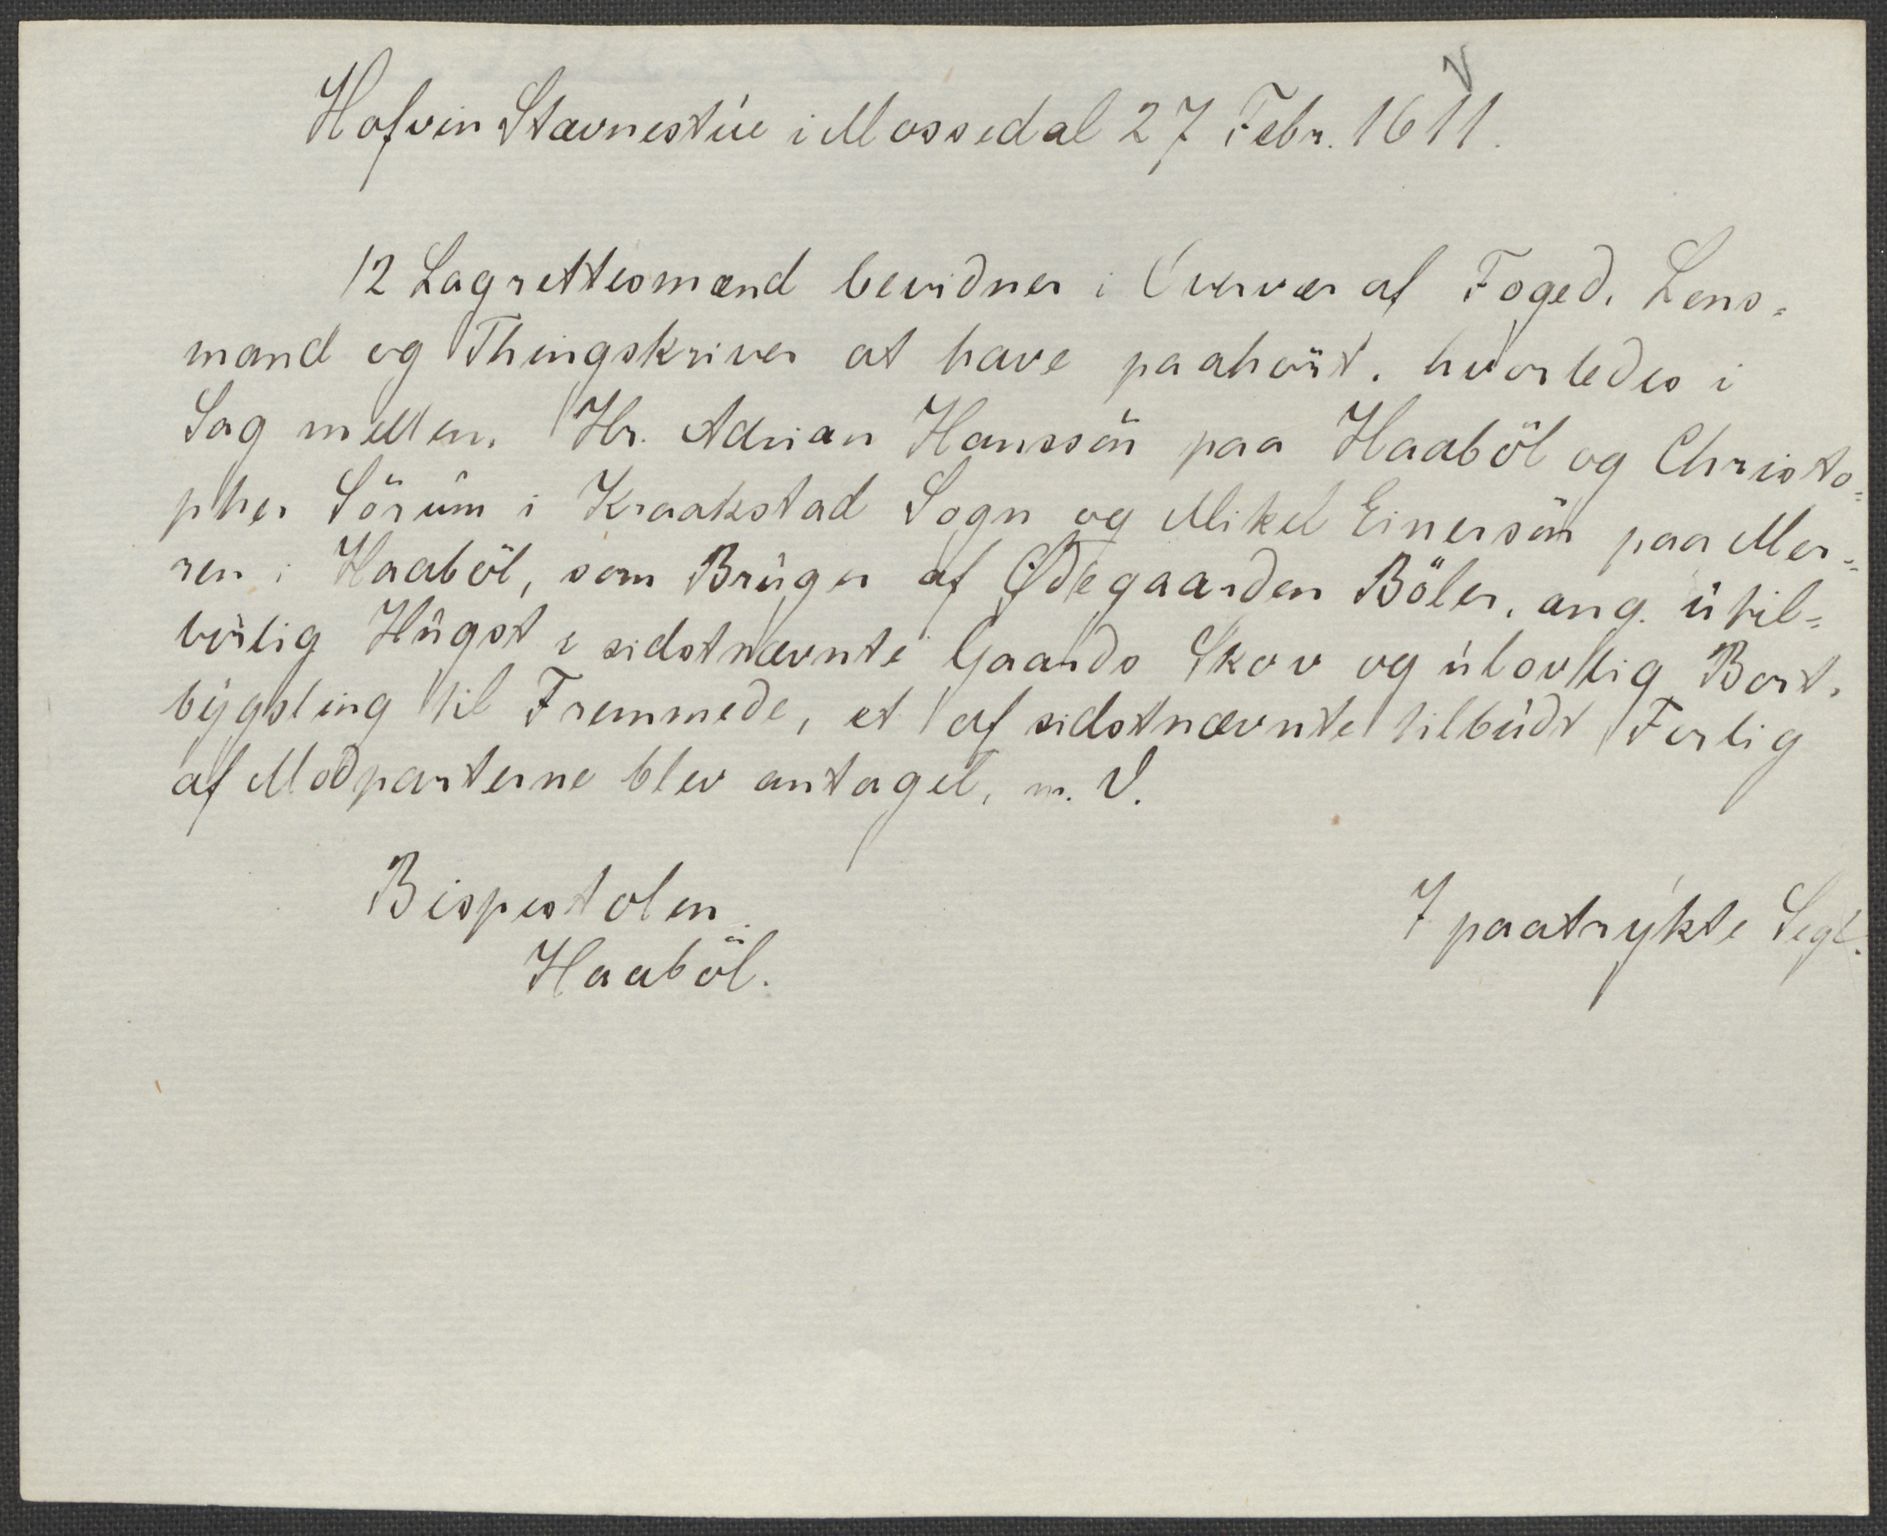 Hofvin Stævnestúe i Mossedal 27 Febr. 1611.
12 Lagrettesmænd bevidner i Overvær af Foged, Lens=
mand og Thingskriver at have paahört, hvorledes i
Sag mellem Hr. Adrian Hanssön paa Haaböl og Christo=
pher Sörúm i Kraakstad Sogn og Mikel Einersön paa Mer=
ren i Haaböl, som Brúger af Ødegaarden Böler, ang. útil=
börlig Húgst i sidstnævnte Gaards Skov og úlovlig Bort=
býgsling til Fremmede, et af sidstnævnte tilbúdt Forlig
af Modparterne blev antaget, m. V.
Bispestolen
Haaböl.
7 paatrýkte Segl.